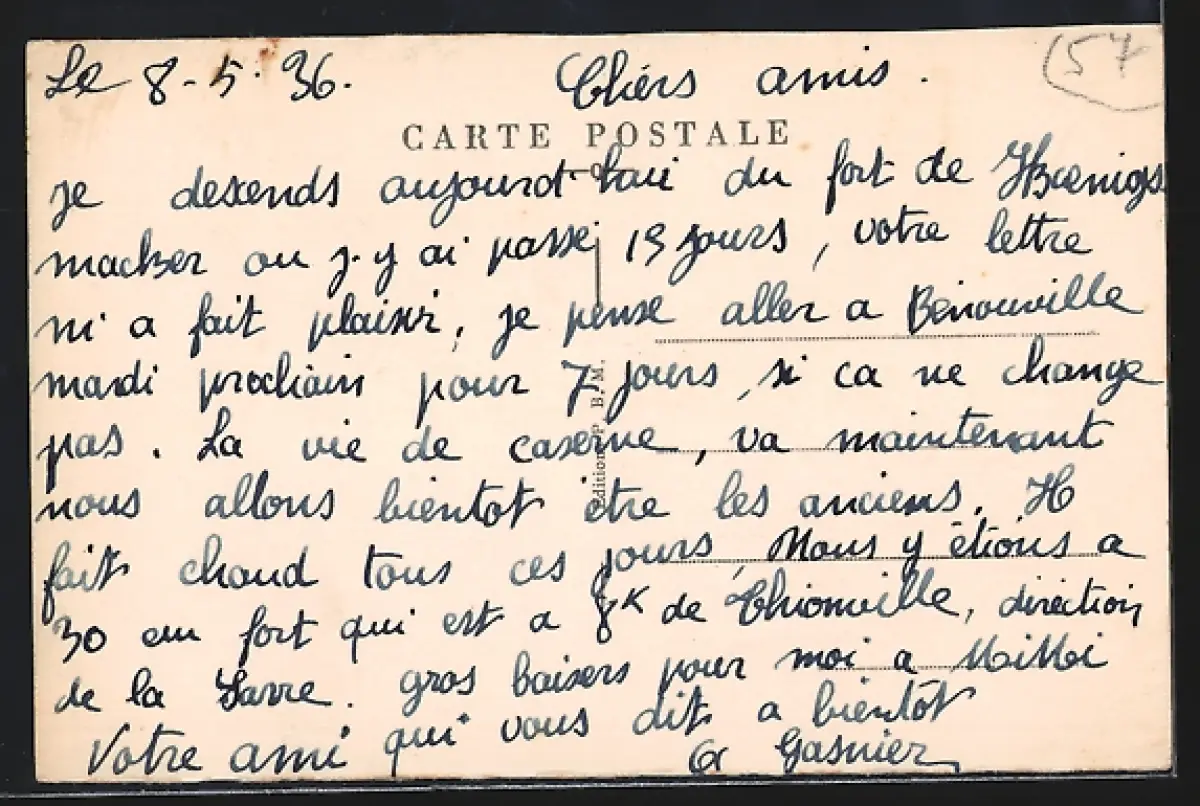 Le 8-5-36. Chers amis. (57
CARTE POSTALE
je desends aujourd'hui du fort de
macker ou j-y ai passé 15 jours, votre lettre
m'a fait plaisir, je pense aller a Benouville
mardi prochain pour 7 jours, si ca ne change
pas. La vie de caserne, va maintenant
nous allons bientot être les anciens. Il
fait chaud tous ces jours, Nous y étions a
30 au fort qui est a 8K de Thionville, direction
de la Sarre. gros baisers pour moi a
Votre ami qui vous dit a bientôt
G Gasnier
Edition P. B. M.